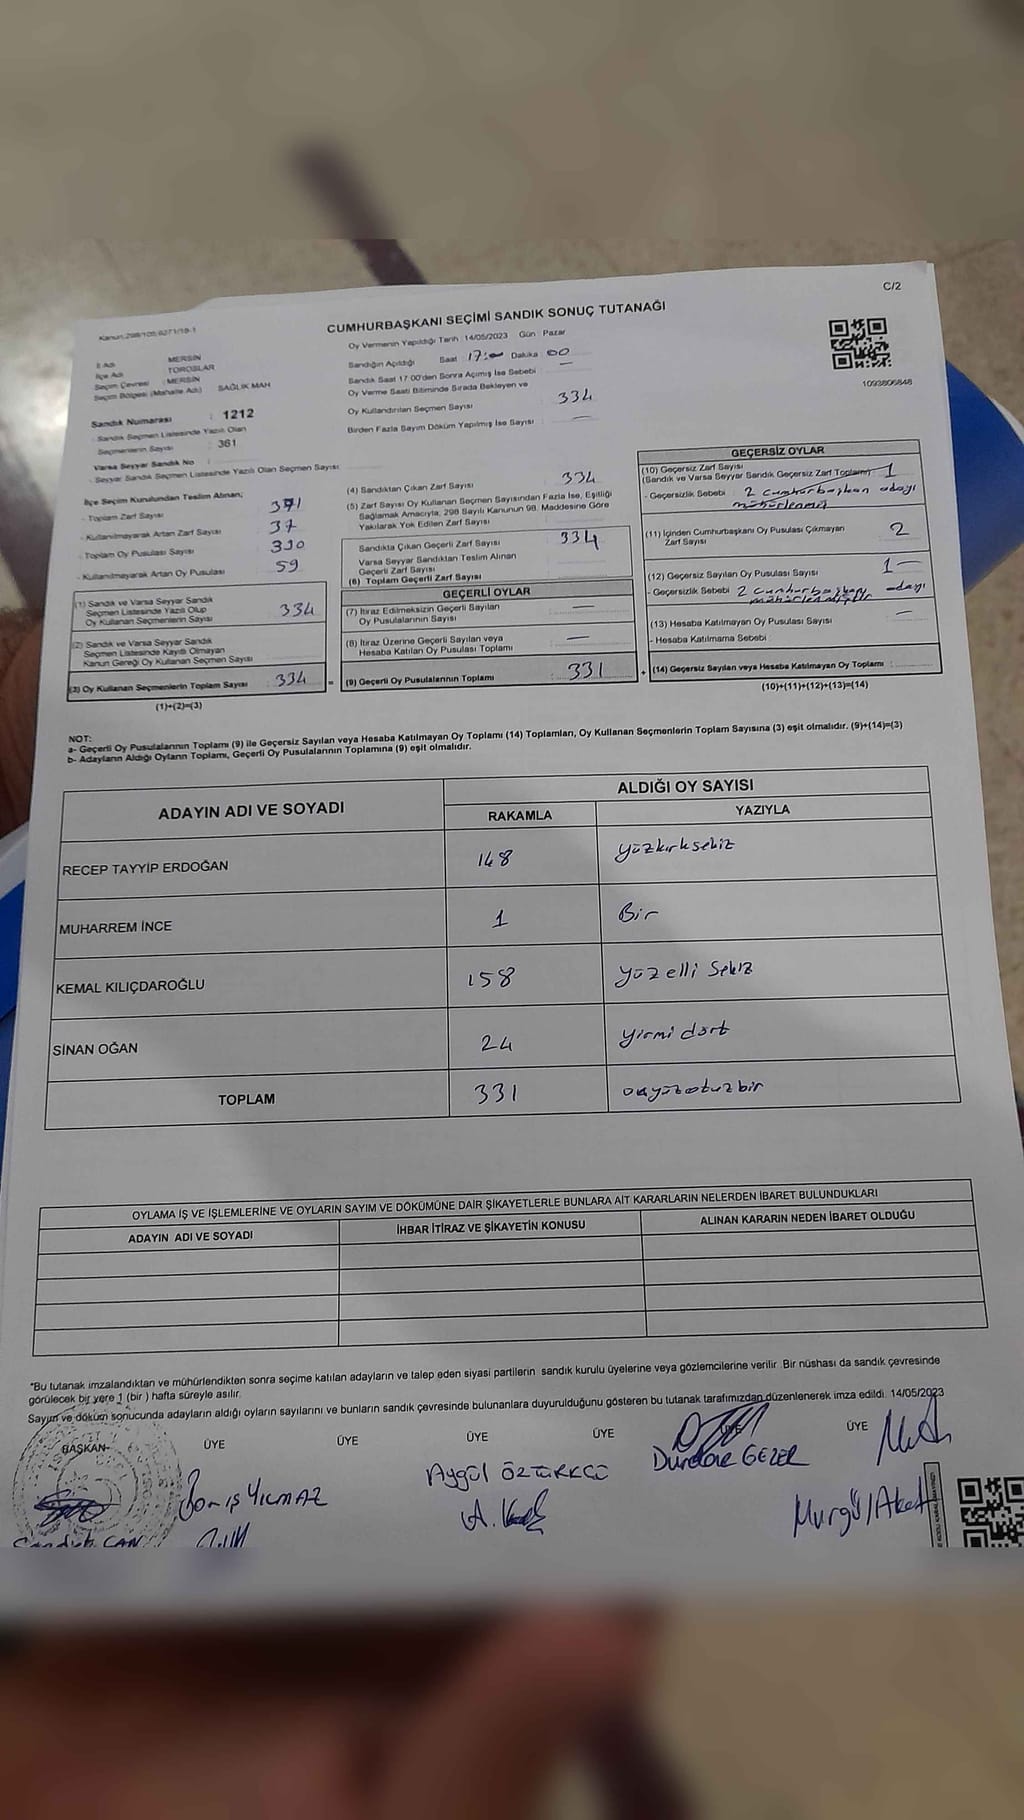 C/2
Kanun:298/105,6271/19-1
CUMHURBAŞKANI SEÇİMİ SANDIK SONUÇ TUTANAĞI
Oy Vermenin Yapıldığı Tarih : 14/05/2023 Gün : Pazar
İl Adı : MERSİN
İlçe Adı : TOROSLAR
Seçim Çevresi : MERSİN
Seçim Bölgesi (Mahalle Adı) : SAĞLIK MAH
Sandık Numarası : 1212
- Sandık Seçmen Listesinde Yazılı Olan
Seçmenlerin Sayısı : 361
Varsa Seyyar Sandık No :
- Seyyar Sandık Seçmen Listesinde Yazılı Olan Seçmen Sayısı:
Sandığın Açıldığı Saat 17:00 Dakika 00
Sandık Saat 17.00'den Sonra Açımış İse Sebebi —
Oy Verme Saati Bitiminde Sırada Bekleyen ve
Oy Kullandırılan Seçmen Sayısı 334
Birden Fazla Sayım Döküm Yapılmış İse Sayısı —
1093806848
İlçe Seçim Kurulundan Teslim Alınan;
- Toplam Zarf Sayısı 371
- Kullanılmayarak Artan Zarf Sayısı : 37
- Toplam Oy Pusulası Sayısı
- Kullanılmayarak Artan Oy Pusulası : 59
(1) Sandık ve Varsa Seyyar Sandık
Seçmen Listesinde Yazılı Olup
Oy Kullanan Seçmenlerin Sayısı : 334
(2) Sandık ve Varsa Seyyar Sandık
Seçmen Listesinde Kayıtlı Olmayan
Kanun Gereği Oy Kullanan Seçmen Sayısı :
(3) Oy Kullanan Seçmenlerin Toplam Sayısı : 334
(1)+(2)=(3)
(4) Sandıktan Çıkan Zarf Sayısı 334
(5) Zarf Sayısı Oy Kullanan Seçmen Sayısından Fazla İse, Eşitliği
Sağlamak Amacıyla, 298 Sayılı Kanunun 98. Maddesine Göre
Yakılarak Yok Edilen Zarf Sayısı
Sandıkta Çıkan Geçerli Zarf Sayısı 334
Varsa Seyyar Sandıktan Teslim Alınan
Geçerli Zarf Sayısı
(6) Toplam Geçerli Zarf Sayısı
GEÇERLİ OYLAR
(7) İtiraz Edilmeksizin Geçerli Sayılan
Oy Pusulasının Sayısı —
(8) İtiraz Üzerine Geçerli Sayılan veya
Hesaba Katılan Oy Pusulası Toplamı —
(9) Geçerli Oy Pusulalarının Toplamı : 331
GEÇERSİZ OYLAR
(10) Geçersiz Zarf Sayısı
(Sandık ve Varsa Seyyar Sandık Geçersiz Zarf Toplamı) 1
- Geçersizlik Sebebi : 2 cumhurbaşkan adayı
mühürlenmiş
(11) İçinden Cumhurbaşkanı Oy Pusulası Çıkmayan
Zarf Sayısı 2
(12) Geçersiz Sayılan Oy Pusulası Sayısı : 1 —
- Geçersizlik Sebebi 2 cumhurbaşkanı adayı
mühürlenmiştir
(13) Hesaba Katılmayan Oy Pusulası Sayısı : —
- Hesaba Katılmama Sebebi :
(14) Geçersiz Sayılan veya Hesaba Katılmayan Oy Toplamı :
(10)+(11)+(12)+(13)=(14)
NOT:
a- Geçerli Oy Pusulalarının Toplamı (9) ile Geçersiz Sayılan veya Hesaba Katılmayan Oy Toplamı (14) Toplamları, Oy Kullanan Seçmenlerin Toplam Sayısına (3) eşit olmalıdır. (9)+(14)=(3)
b- Adayların Aldığı Oyların Toplamı, Geçerli Oy Pusulalarının Toplamına (9) eşit olmalıdır.
ADAYIN ADI VE SOYADI
ALDIĞI OY SAYISI
RAKAMLA YAZIYLA
RECEP TAYYİP ERDOĞAN 148 yüzkırksekiz
MUHARREM İNCE 1 Bir
KEMAL KILIÇDAROĞLU 158 yüz elli sekiz
SİNAN OĞAN 24 yirmi dört
TOPLAM 331
OYLAMA İŞ VE İŞLEMLERİNE VE OYLARIN SAYIM VE DÖKÜMÜNE DAİR ŞİKAYETLERLE BUNLARA AİT KARARLARIN NELERDEN İBARET BULUNDUKLARI
ADAYIN ADI VE SOYADI İHBAR İTİRAZ VE ŞİKAYETİN KONUSU ALINAN KARARIN NEDEN İBARET OLDUĞU
*Bu tutanak imzalandıktan ve mühürlendikten sonra seçime katılan adayların ve talep eden siyasi partilerin sandık kurulu üyelerine veya gözlemcilerine verilir. Bir nüshası da sandık çevresinde
görülecek bir yere 1 (bir ) hafta süreyle asılır.
Sayım ve döküm sonucunda adayların aldığı oyların sayılarını ve bunların sandık çevresinde bulunanlara duyurulduğunu gösteren bu tutanak tarafımızdan düzenlenerek imza edildi. 14/05/2023
BAŞKAN ÜYE ÜYE ÜYE ÜYE ÜYE ÜYE
Barış YILMAZ
Aygül ÖZTÜRKCÜ
Durdane GEZER